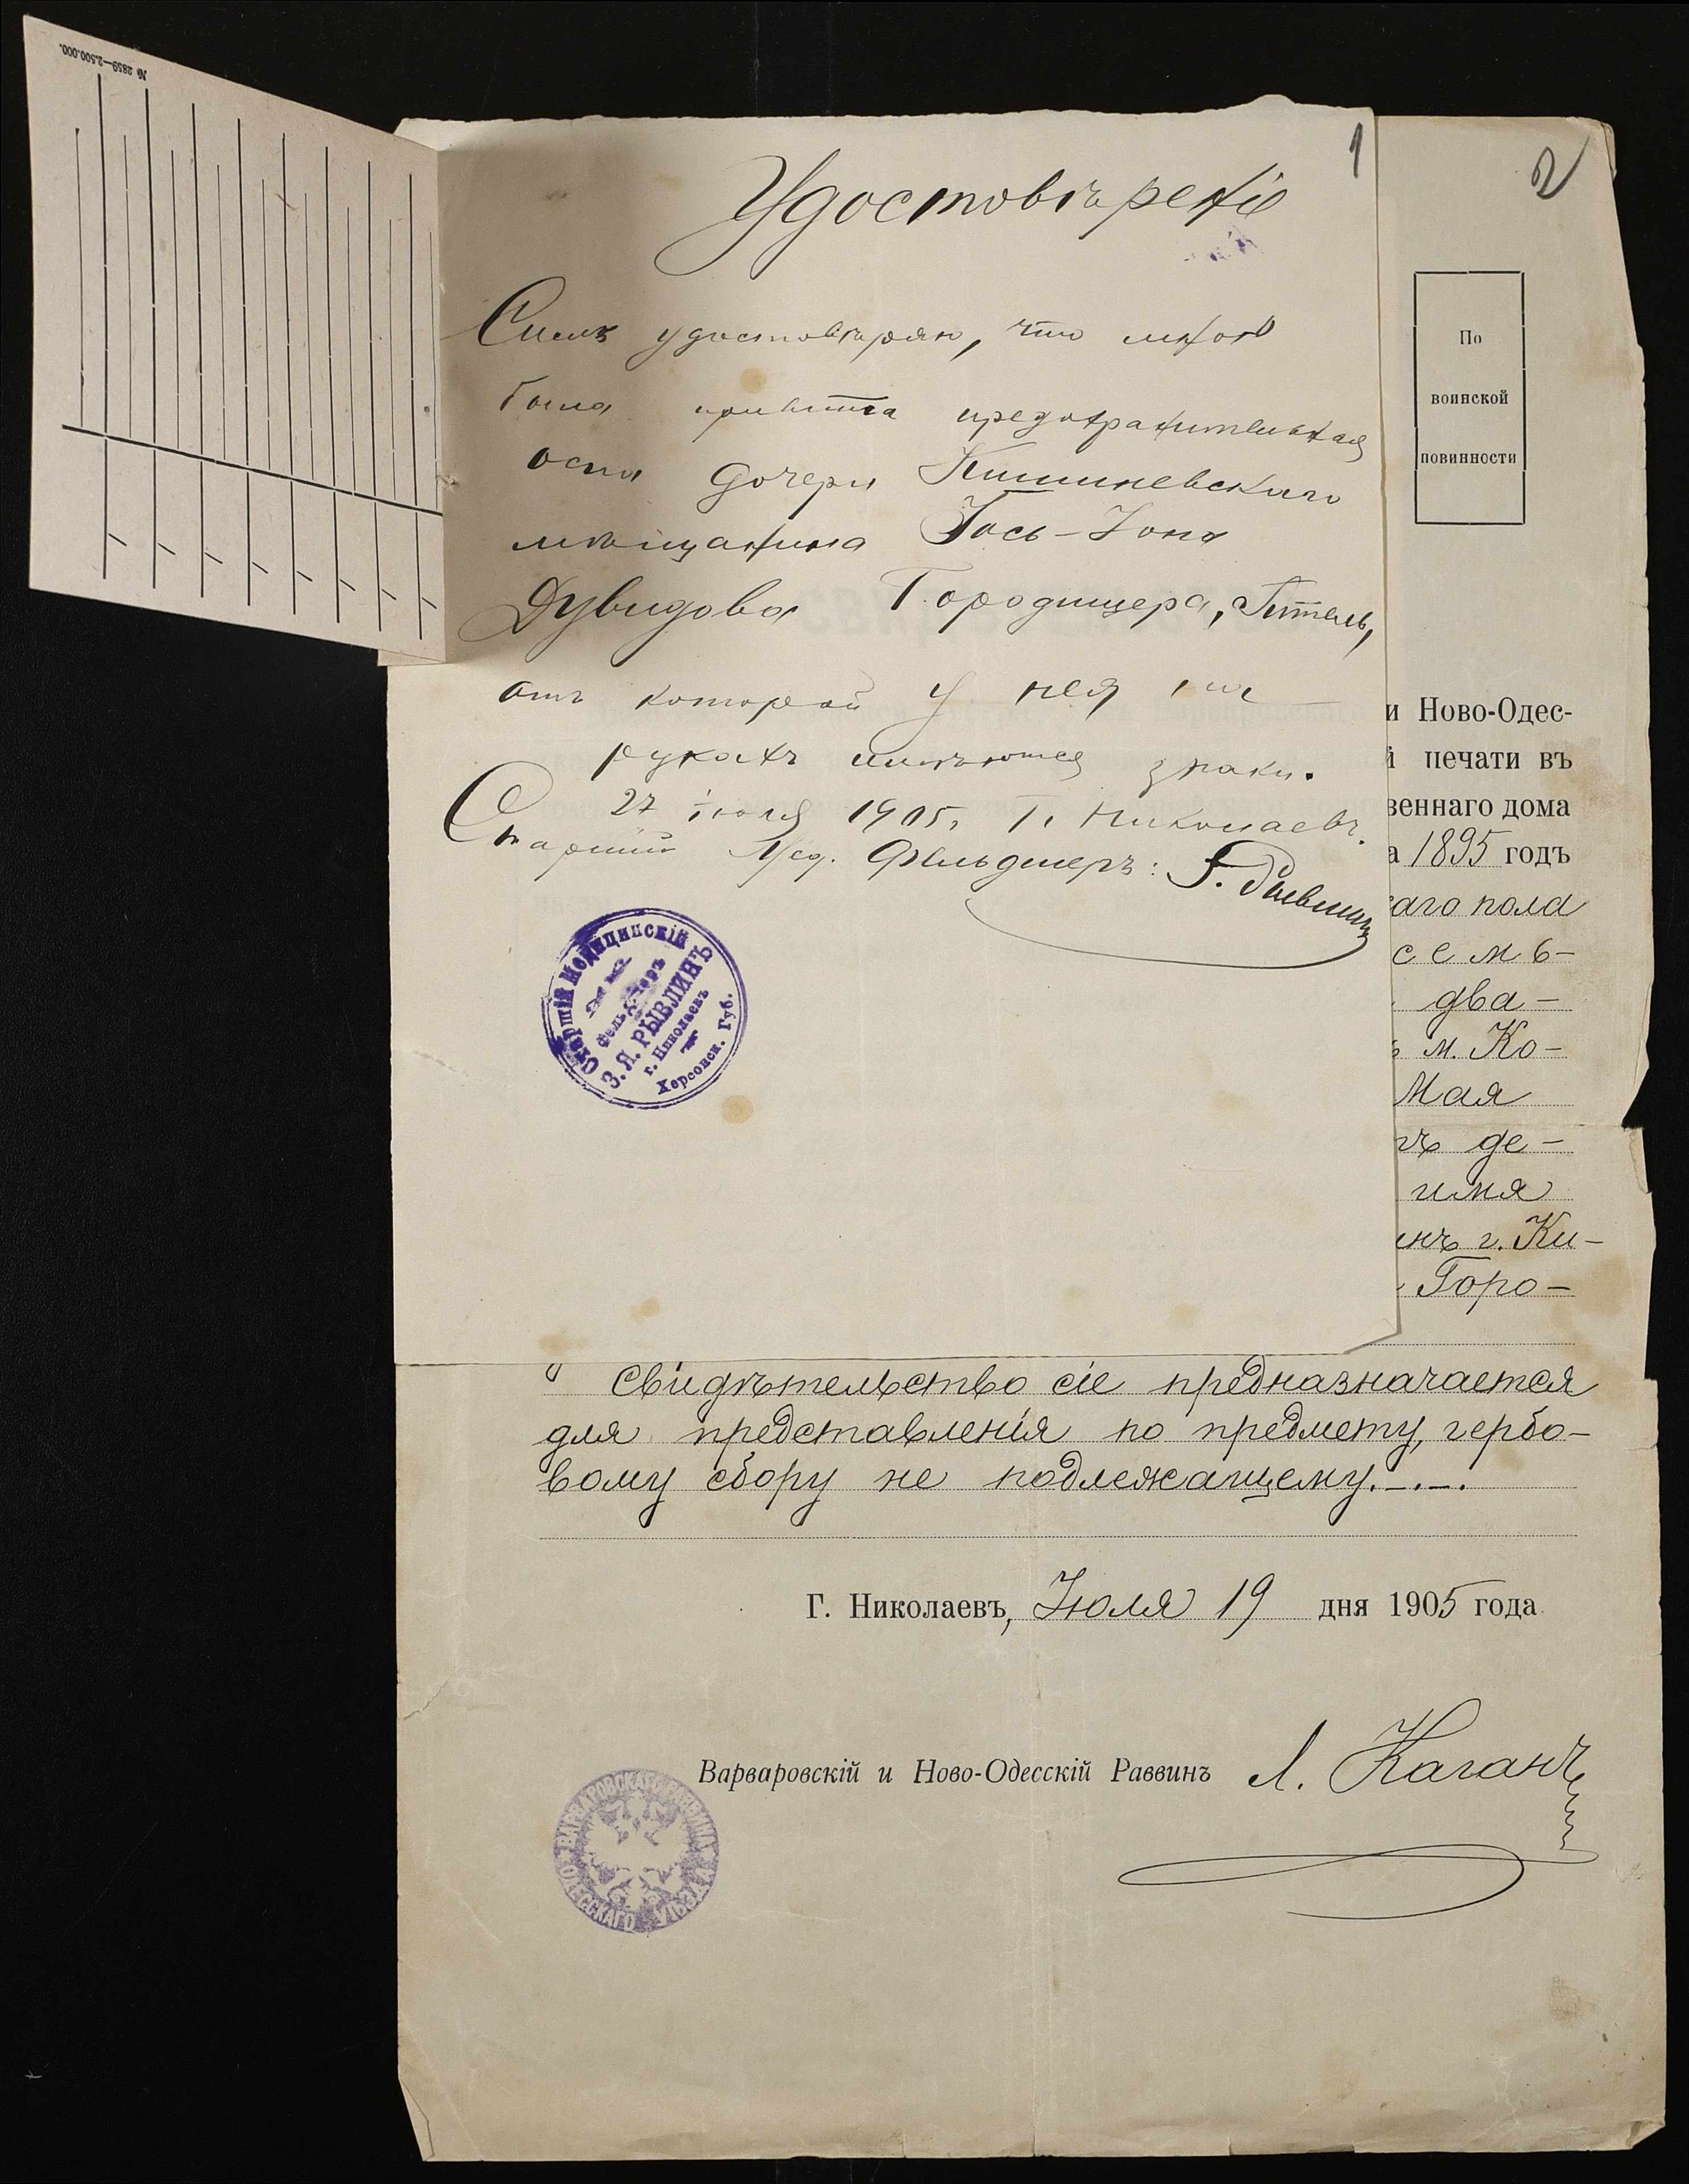 № 2859—2.500.000.
1
Удостовѣреніе
Симъ удостовѣряю, что мною
была привита предохранительная
оспа дочери Кишиневскаго
мѣщанина Іось-Зона
Дувидова Городищера, Гитель,
отъ которой у нея на
рукахъ имѣются знаки.
27 іюля 1905. Г. Николаевъ.
Старшій Мед. Фельдшеръ: З. Рывлинъ
Старшій Медицинскій
Фельдшеръ
З. Я. РЫВЛИНЪ
г. Николаевъ
Херсонск. Губ.
2
По
воинской
повинности
и Ново-Одес-
й печати въ
веннаго дома
а 1895 годъ
аго пола
семь-
два-
м. Ко-
Мая
де-
имя
инъ г. Ки-
Горо-
Свидѣтельство сіе предназначается
для представленія по предмету, гербо-
вому сбору не подлежащему.-.-.
Г. Николаевъ, Іюля 19 дня 1905 года
Варваровскій и Ново-Одесскій Раввинъ Л. Каганъ
ВАРВАРОВСКАГО РАВВИНА
ОДЕССКАГО УѢЗДА